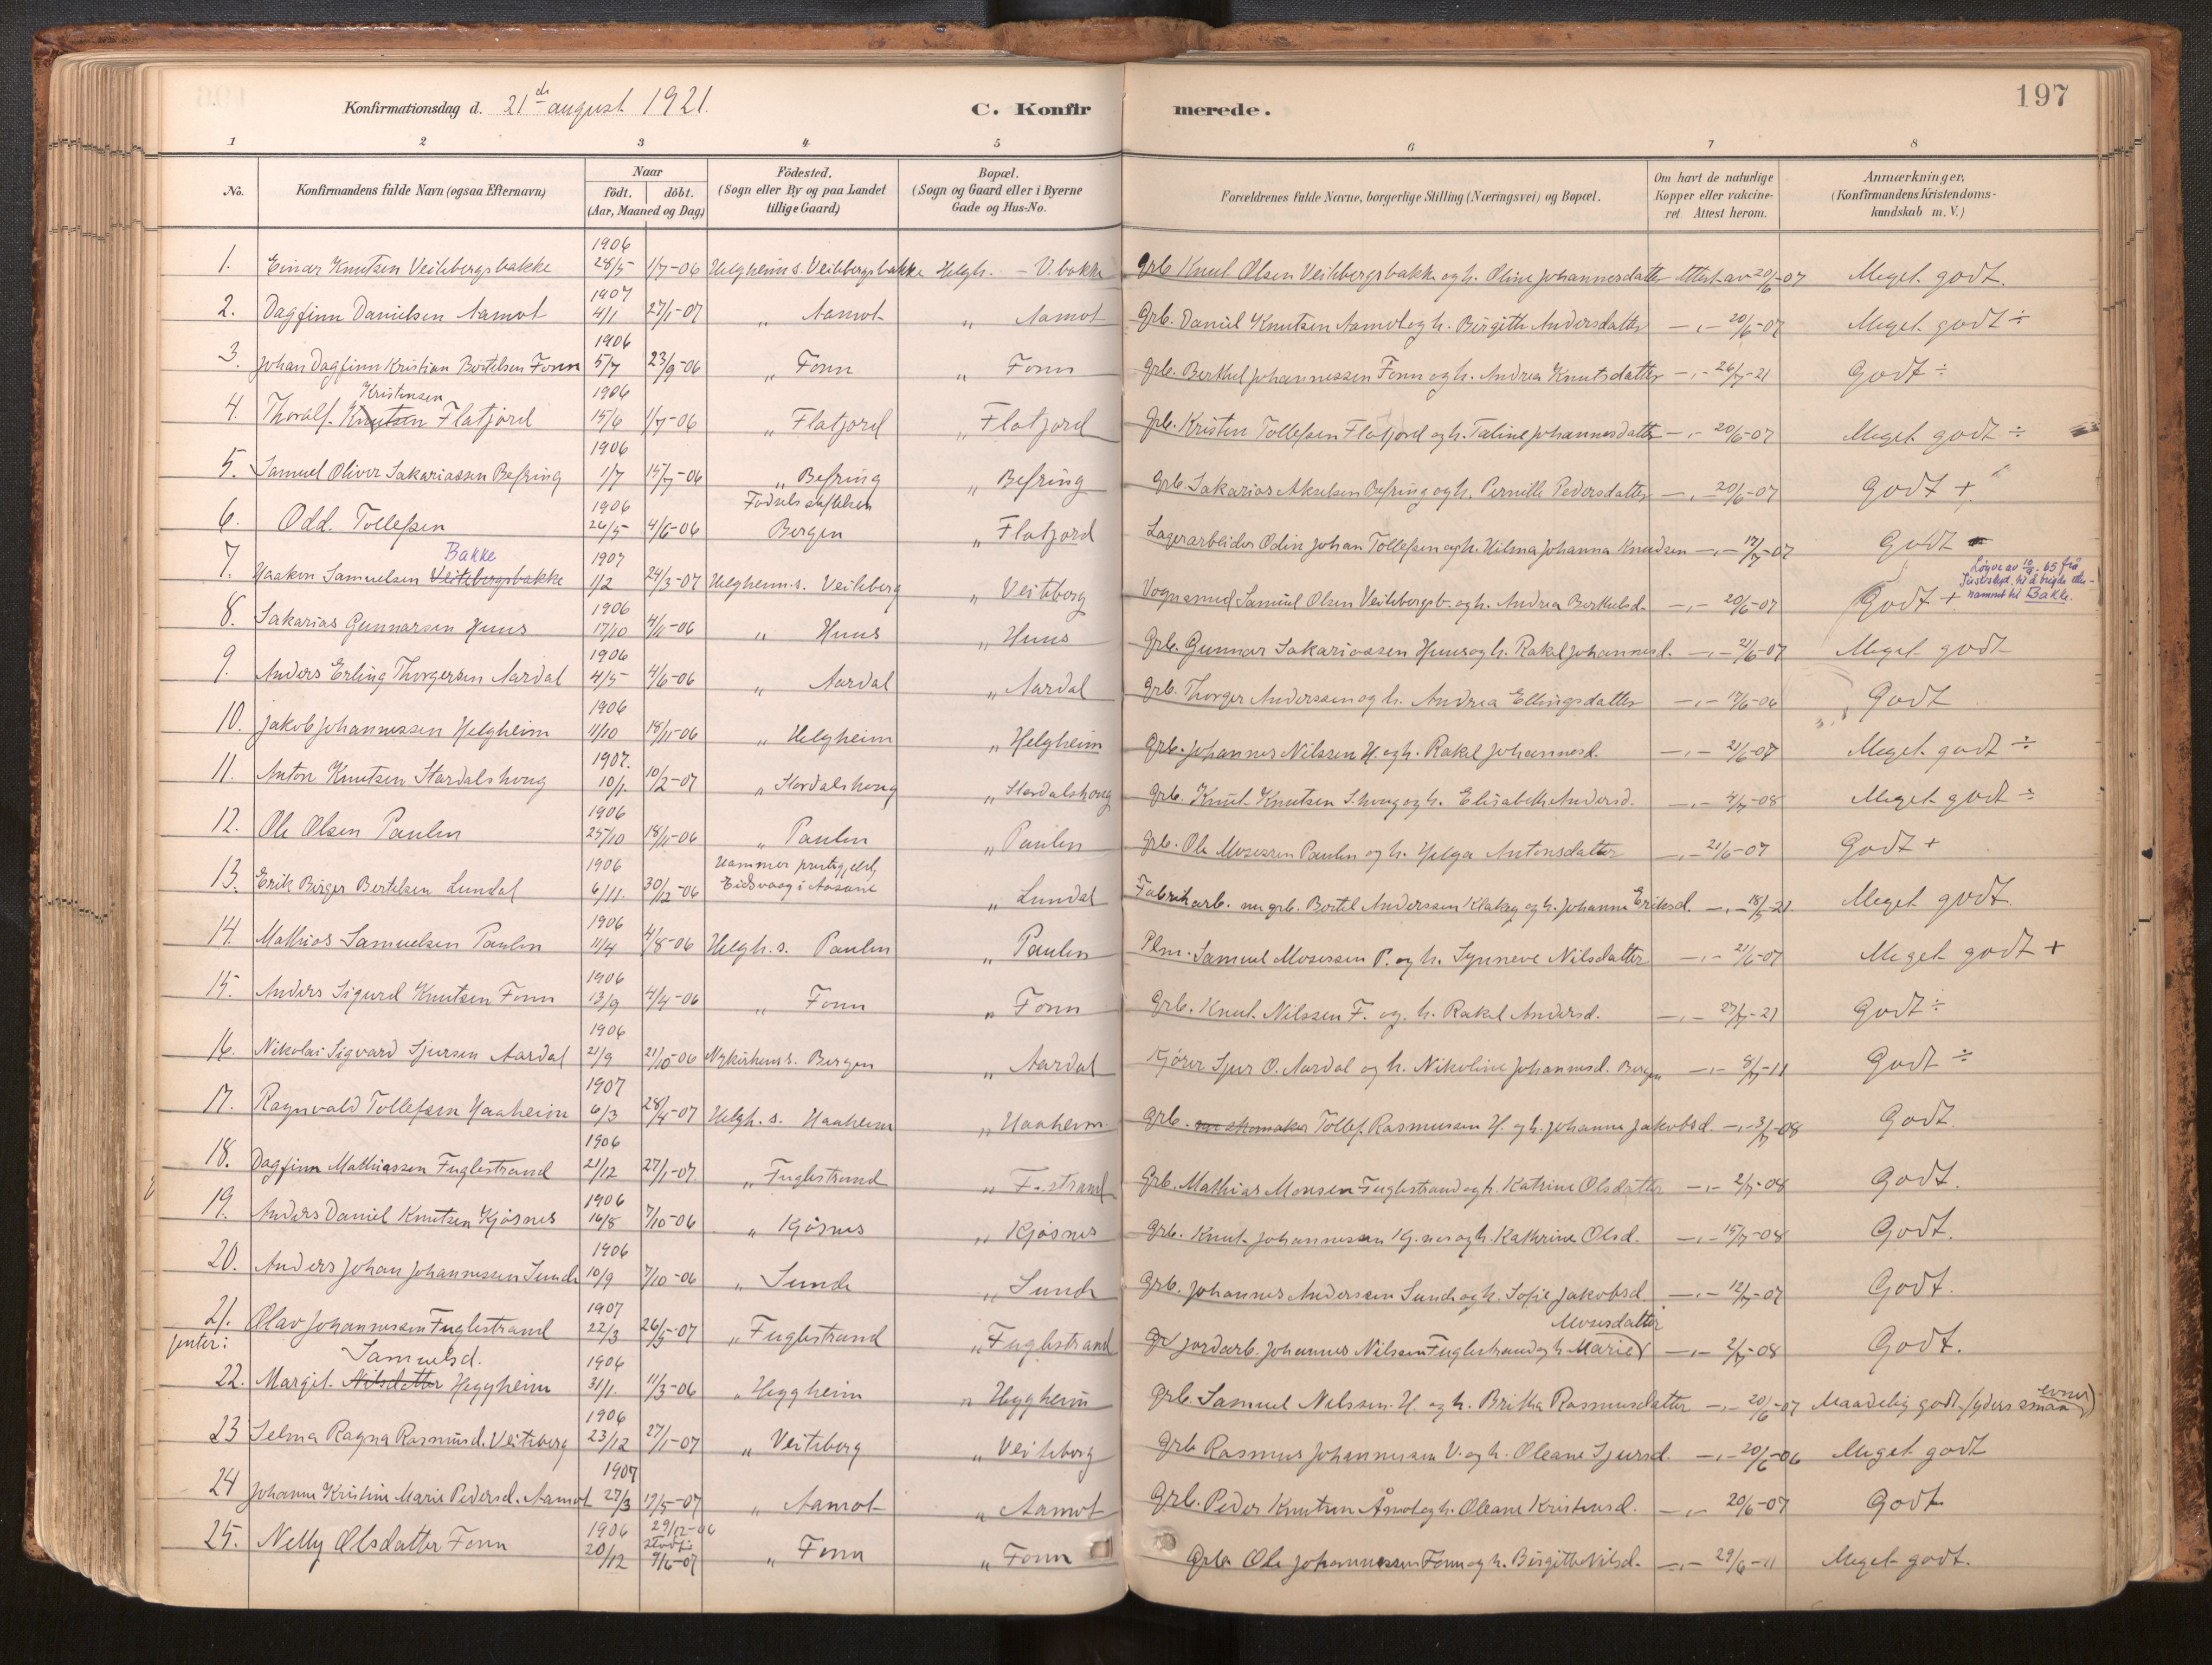 197
Konfirmationsdag d. 21de august 1921.
C. Konfirmerede.
1 2 3 4 5 6 7 8
No. Konfirmandens fulde Navn (ogsaa Efternavn) Naar födt. döbt. (Aar, Maaned og Dag) Födested. (Sogn eller By og paa Landet tillige Gaard) Bopæl. (Sogn og Gaard eller i Byerne Gade og Hus-No. Forældrenes fulde Navne, borgerlige Stilling (Næringsvei) og Bopæl. Om havt de naturlige Kopper eller vakcineret. Attest herom. Anmærkninger, (Konfirmandens Kristendomskundskab m. V.)
1. Einar Knutsen Veitebergsbakke 1906 28/5 1/7-06 Helgheim s. Veitebergsbakke Helgh. - V.bakke Grb. Knut Olsen Veitebergsbakke og h. Oline Johannesdatter Attest av 20/6-07 Meget godt.
2. Dagfinn Danielsen Aamot 1907 4/1 27/1-07 " Aamot " Aamot Grb. Daniel Knutsen Aamot og h. Birgithe Andersdatter -"- 20/6-07 Meget godt ÷
3. Johan Dagfinn Kristian Bertelsen Fonn 1906 5/7 23/9-06 " Fonn " Fonn Grb. Berthel Johannessen Fonn og h. Andrea Knutsdatter -"- 26/7-21 Godt ÷
4. Thoralf Knutsen Kristensen Flatjord 1906 15/6 1/7-06 " Flatjord " Flatjord Grb. Kristen Tollefsen Flatjord og h. Taline Johannesdatter -"- 20/6-07 Meget godt ÷
5. Samuel Oliver Sakariassen Befring 1906 1/7 15/7-06 " Befring " Befring Grb. Sakarias Akselsen Befring og h. Pernille Pedersdatter -"- 20/6-07 Godt +
6. Odd. Tollefsen 1906 26/5 4/6-06 Fødselsstiftelsen Bergen " Flatjord Lagerarbeider Odin Johan Tollefsen og h. Hilma Johanna Knudsen -"- 17/7-07 Godt
7. Haakon Samuelsen Veitebergsbakke Bakke 1907 1/2 24/3-07 Helgheim s. Veiteberg " Veiteberg Vognsmed Samuel Olsen Veitebergsb. og h. Andrea Berthelsd. -"- 20/6-07 Godt + Løyve av 10/8-65 frå Justisdep. til å brigde etternamnet til Bakke.
8. Sakarias Gunnarsen Huus 1906 17/10 4/11-06 " Huus " Huus Grb. Gunnar Sakariassen Huus og h. Rakel Johannesd. -"- 21/6-07 Meget godt
9. Anders Erling Thorgersen Aardal 1906 4/5 4/6-06 " Aardal " Aardal Grb. Thorger Anderssen og h. Andrea Ellingsdatter -"- 17/6-06 Godt
10. Jakob Johannessen Helgheim 1906 11/10 18/11-06 " Helgheim " Helgheim Grb. Johannes Nilssen H. og h. Rakel Johannesd. -"- 21/6-07 Meget godt ÷
11. Anton Knutsen Stardalshoug 1907. 10/1. 10/2-07 " Stardalshoug " Stardalshoug Grb. Knut Knutsen S.houg og h. Elisabeth Andersd. -"- 4/7-08 Meget godt ÷
12. Ole Olsen Paulen 1906 25/10 18/11-06 " Paulen " Paulen Grb. Ole Mosessen Paulen og h. Helga Antonsdatter -"- 21/6-07 Godt +
13. Erik Birger Bertelsen Lundal 1906 6/11. 30/12-06 Hammer prestegjeld, Eidsvaag i Aasane " Lundal Fabrikarb. nu grb. Bertel Anderssen Klakeg og h. Johanne Eriksd. -"- 18/7-21. Meget godt.
14. Mathias Samuelsen Paulen 1906 11/4 4/8-06 Helgh. s. Paulen " Paulen Plm. Samuel Mosessen P. og h. Synneve Nilsdatter -"- 21/6-07 Meget godt +
15. Anders Sigurd Knutsen Fonn 1906 13/9 4/4-06 " Fonn " Fonn Grb. Knut Nilssen F. og h. Rakel Andersd. -"- 27/7-21 Godt ÷
16. Nikolai Sigvard Sjursen Aardal 1906 21/9 21/10-06 Nykirkens s. Bergen " Aardal Kjører Sjur O. Aardal og h. Nikoline Johannesd. Bergen -"- 8/7-11 Godt ÷
17. Ragnvald Tollefsen Haaheim 1907 6/3 28/4-07 Helgh. s. Haaheim " Haaheim Grb. Tollef Rasmussen H. og h. Johanne Jakobsd. -"- 3/7-08 Godt.
18. Dagfinn Mathiassen Fuglestrand 1906 21/12 27/1-07 " Fuglestrand " F.strand Grb. Mathias Monsen Fuglestrand og h. Katrine Olsdatter -"- 2/7-08 Godt.
19. Anders Daniel Knutsen Kjøsnes 1906 16/8 7/10-06 " Kjøsnes " Kjøsnes Grb. Knut Johannessen Kj.nes og h. Kathrine Olsd. -"- 15/7-08 Godt.
20. Anders Johan Johannessen Sunde 1906 10/9 7/10-06 " Sunde " Sunde Grb. Johannes Anderssen Sunde og h. Sofie Jakobsd. -"- 12/7-07 Godt.
21. Olav Johannessen Fuglestrand 1907 22/3 26/5-07 " Fuglestrand " Fuglestrand Jordarb. Johannes Nilssen Fuglestrand og h. Marie Mosesdatter -"- 2/7-08 Godt.
jenter:
22. Margit Nilsdatter Samuelsd. Heggheim 1906 31/1. 11/3-06 " Heggheim " Heggheim Grb. Samuel Nilssen H. og h. Britha Rasmusdatter -"- 20/6-07 Maadelig godt (yders smaa evner)
23 Selma Ragna Rasmusd. Veiteberg 1906 23/12 27/1-07 " Veiteberg " Veiteberg Grb Rasmus Johannessen V. og h. Oleane Sjursd. -"- 20/6-06 Meget godt
24 Johanne Kristine Marie Pedersd. Aamot 1907 27/3 19/5-07 " Aamot " Aamot Grb. Peder Knutsen Åmot og h. Oleane Kristensd. -"- 20/6-07 Godt
25. Nelly Olsdatter Fonn 1906 20/12 29/12-06 stadf. 9/6-07 " Fonn " Fonn Grb Ole Johannessen Fonn og h. Birgithe Nilsd. -"- 29/6-11 Meget godt.